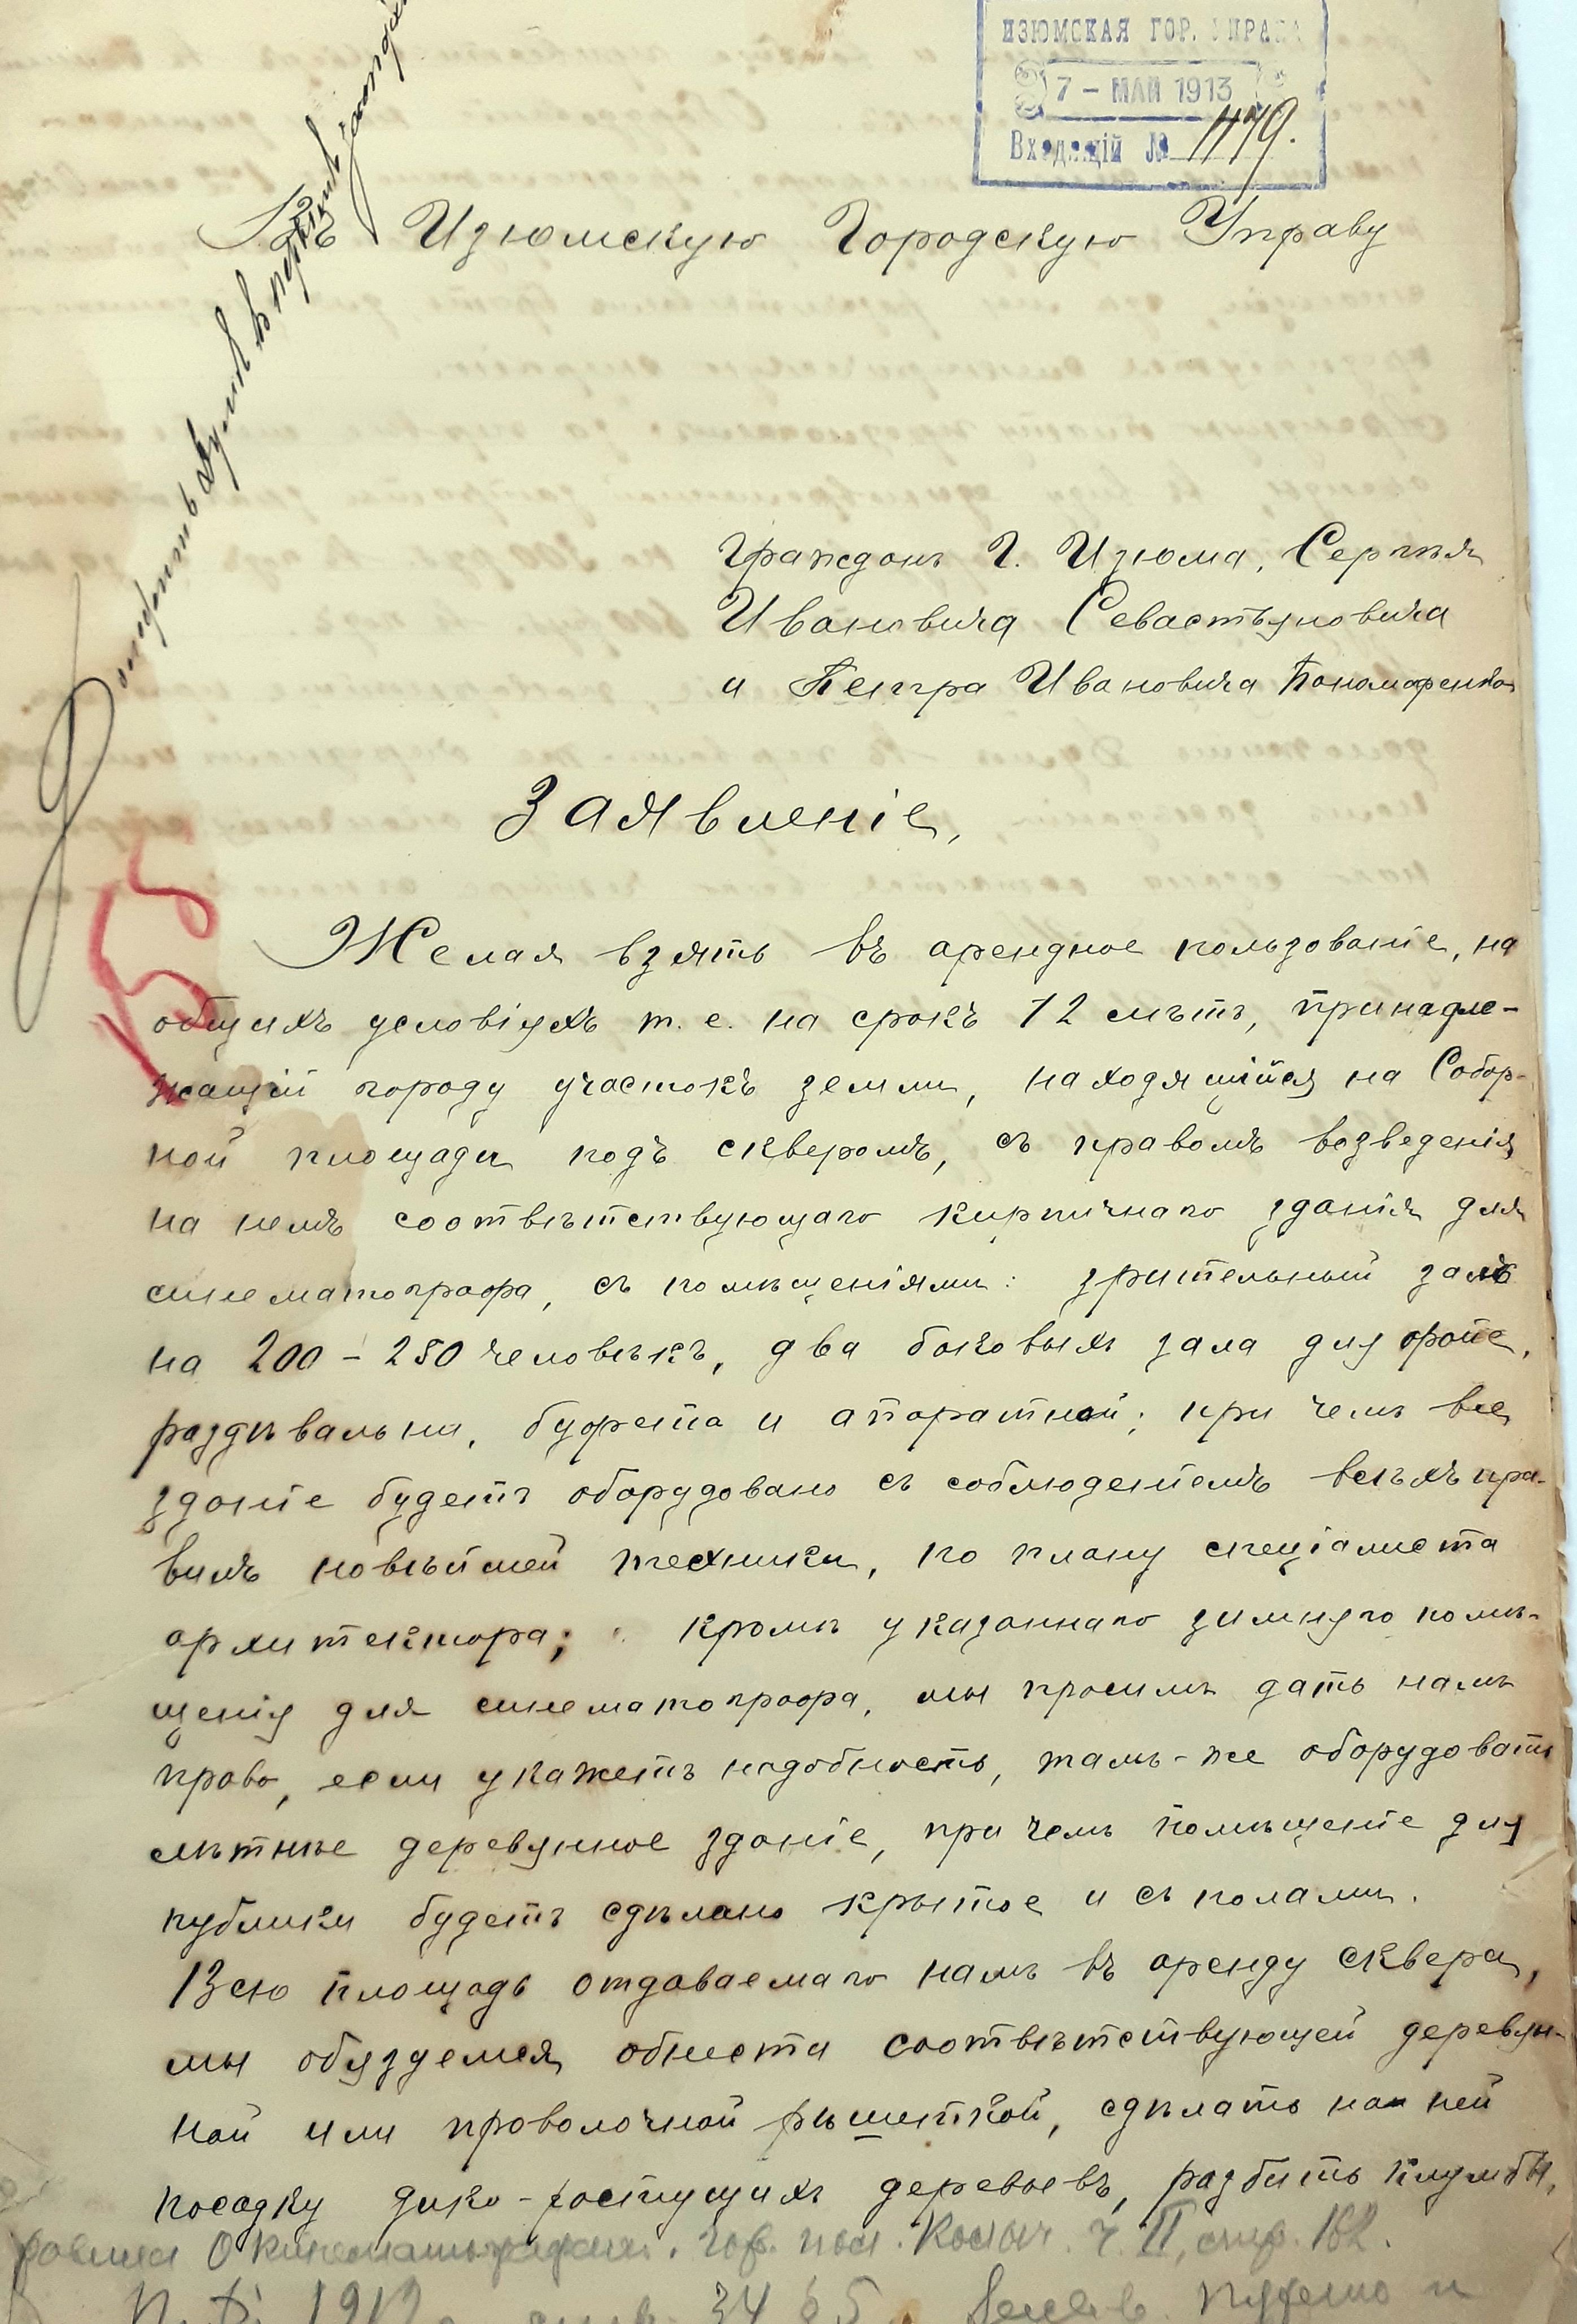 ИЗЮМСКАЯ ГОР. УПРАВА
7 – МАЙ 1913
Входящій № 1179.
Въ Изюмскую Городскую Управу
Граждан Г. Изюма, Сергѣя
Ивановича Севастьяновича
и Петра Ивановича Пономаренко
Заявленіе,
Желая взять въ арендное пользованіе, на
общихъ условіяхъ т. е. на срокъ 12 лѣтъ, принадле-
жащій городу участокъ земли, находящійся на Собор-
ной площади подъ скверомъ, съ правомъ возведенія
на немъ соотвѣтствующаго кирпичнаго зданія для
синематографа, съ помѣщеніями: зрительный залъ
на 200 – 250 человѣкъ, два боковых зала для фойе,
раздѣвальни, буфета и апаратной; при чемъ все
зданіе будетъ оборудовано съ соблюденіемъ всѣхъ пра-
вилъ новѣйшей техники, по плану спеціалиста
архитектора; кромѣ указаннаго зимняго помѣ-
щенія для синематографа, мы просимъ дать намъ
право, если укажетъ надобность, тамъ-же оборудовать
лѣтнѣе деревянное зданіе, при чемъ помѣщеніе для
публики будетъ сдѣлано крытое и съ полами.
Всю площадь отдаваемаго намъ въ аренду сквера,
мы обязуемся обнести соотвѣтствующей деревян-
ной или проволочной рѣшеткой, сдѣлать на ней
посадку дико-ростущихъ деревьевъ, разбить клумбы,
О кинематографах. Гор. пол. ч. II, стр. 182.
1912 стр. 34